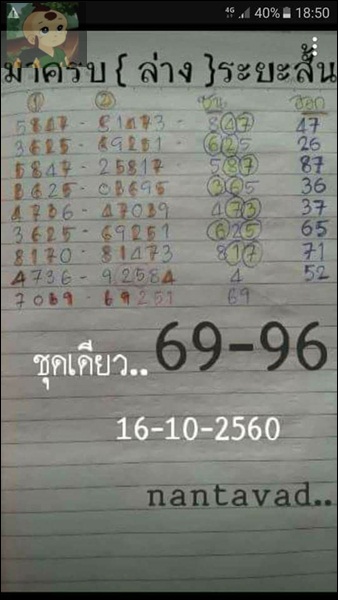 4G 40% 18:50
มาครบ { ล่าง }ระยะสั้น
① ② ชน ออก
5847 - 81473 - 847 47
3625 - 69251 - 625 26
5847 - 25817 - 587 87
3625 - 03695 365 36
4736 - 47039 473 37
3625 - 69251 625 65
8170 - 81473 817 71
4736 - 92584 4 52
7069 - 69251 69
ชุดเดียว.. 69-96
16-10-2560
nantavad..